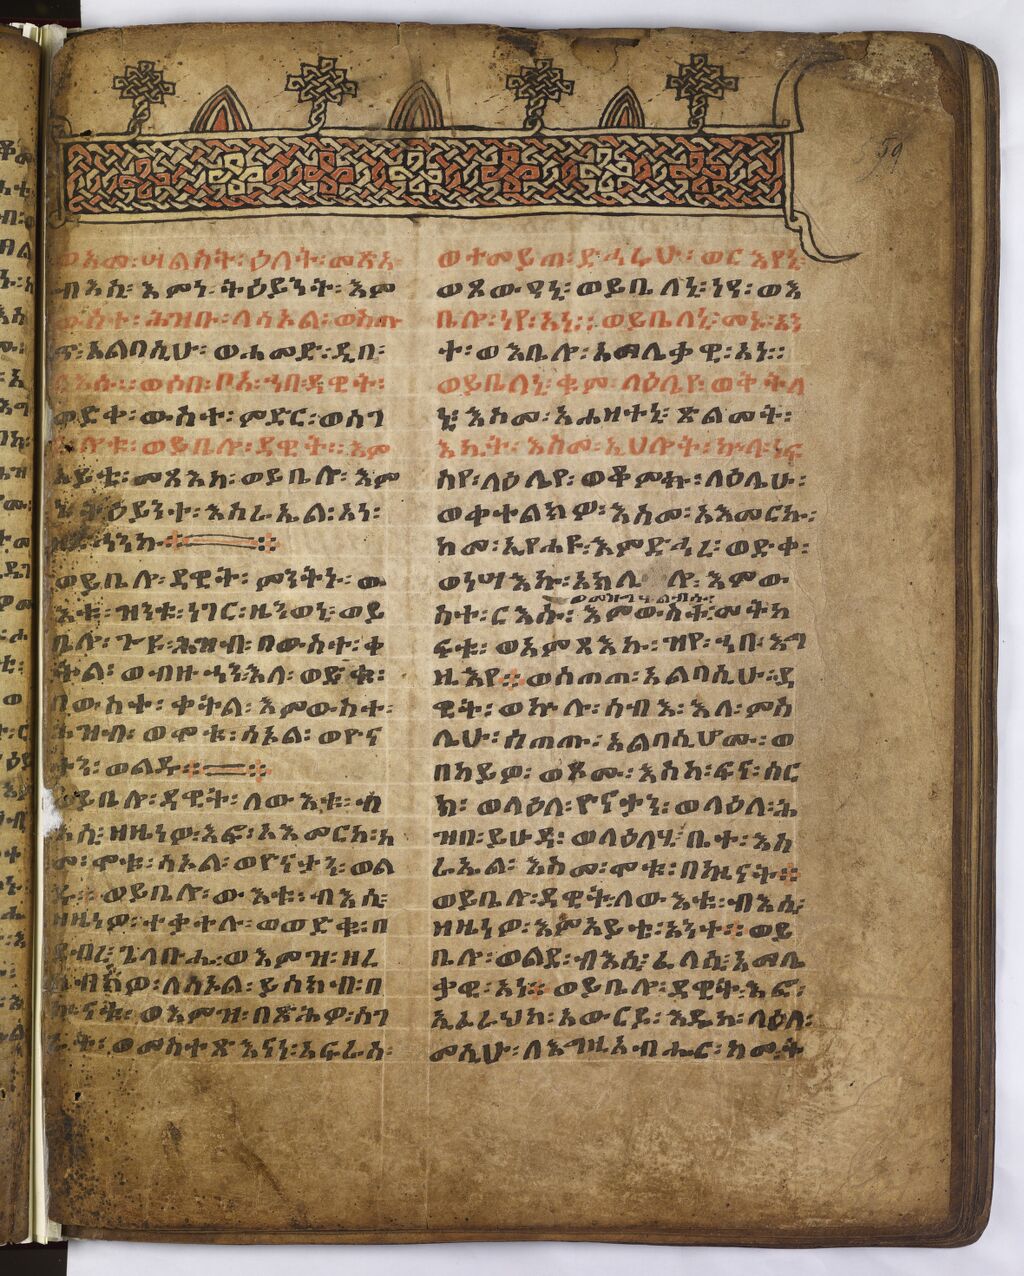 59
ወአመ፡ ሣልስት፡ ዕለት፡ መጽአ፡
ብእሲ፡ እምነ፡ ትዕይንት፡ እም
ውስተ፡ ሕዝቡ፡ ለሳኦል፡ ወስጡ
ጥ፡ አልባሲሁ፡ ወሐመድ፡ ዲበ፡
ርእሱ፡፡ ወሶበ፡ ቦአ፡ ኀበ፡ ዳዊት፡
ወድቀ፡ ውስተ፡ ምድር፡ ወሰገ
ደ፡ ሎቱ፡ ወይቤሎ፡ ዳዊት፡፡ እም
አይቴ፡ መጻእከ፡ ወይቤሎ፡ እም
ነ፡ ትዕይንተ፡ እስራኤል፡ አነ፡
ዘድኅንኩ፡፡
ወይቤሎ፡ ዳዊት፡ ምንትኑ፡ ው
እቱ፡ ዝንቱ፡ ነገር፡ ዜንወኒ፡ ወይ
ቤሎ፡ ጐየ፡ ሕዝብ፡ በውስተ፡ ቀ
ትል፡ ወብዙኃን፡ እለ፡ ወድቁ፡
በውስተ፡ ቀትል፡ እምውስተ፡
ሕዝብ፡ ወሞቱ፡ ሳኦል፡ ወዮና
ታን፡ ወልዱ፡፡
ወይቤሎ፡ ዳዊት፡ ለውእቱ፡ ብ
እሲ፡ ዘዜነዎ፡ እፎ፡ አእመርከ፡ ከ
መ፡ ሞቱ፡ ሳኦል፡ ወዮናታን፡ ወል
ዱ፡፡ ወይቤሎ፡ ውእቱ፡ ብእሲ፡
ዘዜነዎ፡ ተቃተሉ፡ ወወድቁ፡ በ
ደብረ፡ ጌላቡሔ፡ ወእምዝ፡ ዘረ
ከብክዎ፡ ለሳኦል፡ ይሰክብ፡ በ
ኵናቱ፡ ወእምዝ፡ በጽሕዎ፡ ሰገ
ላት፡ ወመስተጽእናነ፡ አፍራስ፡
ወተመይጠ፡ ድኅሬሁ፡ ወርእየኒ፡
ወጸውዐኒ፡ ወይቤለኒ፡ ነየ፡ ወእ
ቤሎ፡ ነየ፡ አነ፡፡ ወይቤለኒ፡ መኑ፡ አን
ተ፡ ወእቤሎ፡ አማሌቃዊ፡ አነ፡፡
ወይቤለኒ፡ ቁም፡ ላዕሌየ፡ ወቅትለ
ኒ፡ እስመ፡ አሐዘተኒ፡ ጽልመት፡
እኪት፡ እስመ፡ ኢህሎት፡ ኵላ፡ ነፍ
ስየ፡ ላዕሌየ፡ ወቆምኩ፡ ላዕሌሁ፡
ወቀተልክዎ፡ እስመ፡ አእመርኩ፡
ከመ፡ ኢየሐዩ፡ እምድኅረ፡ ወድቀ፡
ወነሣእኩ፡ አክሊሎ፡ እምው
ስተ፡ ርእሱ፡ እምውስተ፡ መትከ
ፍቱ፡ ወአምጻእኩ፡ ዝየ፡ ኀበ፡ እግ
ዚእየ፡፡ ወሰጠጠ፡ አልባሲሁ፡ ዳ
ዊት፡ ወኵሉ፡ ሰብእ፡ እለ፡ ምስ
ሌሁ፡ ሰጠጡ፡ አልባሲሆሙ፡ ወ
በከይዎ፡ ወጾሙ፡ እስከ፡ ፍና፡ ሰር
ክ፡ ወላዕለ፡ ዮናታን፡ ወላዕለ፡ ሕ
ዝበ፡ ይሁዳ፡ ወላዕለ፡ ቤተ፡ እስ
ራኤል፡ እስመ፡ ሞቱ፡ በኵናት፡፡
ወይቤሎ፡ ዳዊት፡ ለውእቱ፡ ብእሲ፡
ዘዜነዎ፡ እምአይቴ፡ አንተ፡፡ ወይ
ቤሎ፡ ወልደ፡ ብእሲ፡ ፈላሲ፡ አማሌ
ቃዊ፡ አነ፡፡ ወይቤሎ፡ ዳዊት፡ እፎ፡
ኢፈራህከ፡ አውርዶ፡ እዴከ፡ ላዕለ፡
መሲሁ፡ ለእግዚአብሔር፡ ከመ፡ ት